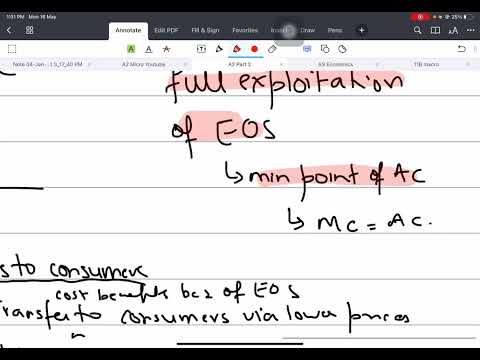 1:01 PM Mon 16 May
25%
Annotate Edit PDF Fill & Sign Favorites Insert Drawing Prism
Note 04-Jan-... 1.5_12_40 PM A2 Micro Youtube A2 Part 2 AS Economics 11B macro
full exploitation
of EOS
↳ min point of AC
↳ MC = AC.
s to consumers
cost benefits bcz of EOS
Transfer to consumers via lower prices